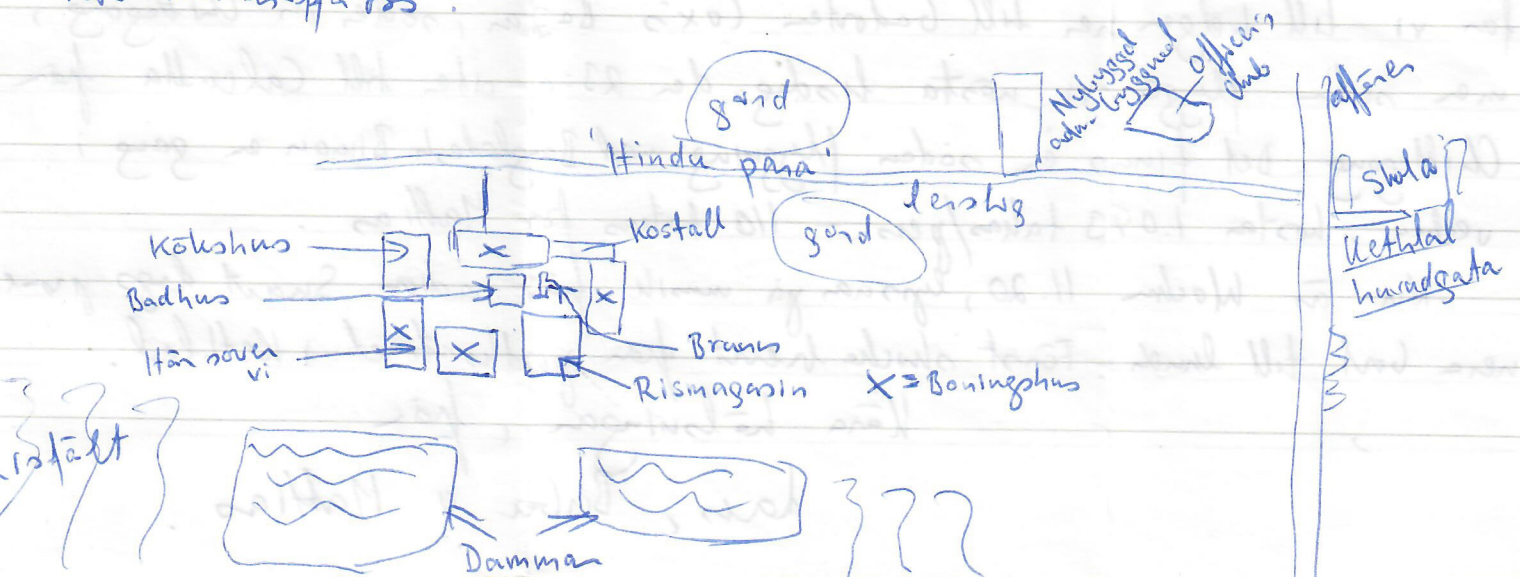 gård
Nybyggd
adm. byggnad
Officers
club
affärer
'Hindu para'
lerstig
Skola
Kethlal
huvudgata
Kökshus
Kostall
gård
Badhus
Här sover
vi
Brunn
Rismagasin
X = Boningshus
risfält
Dammar